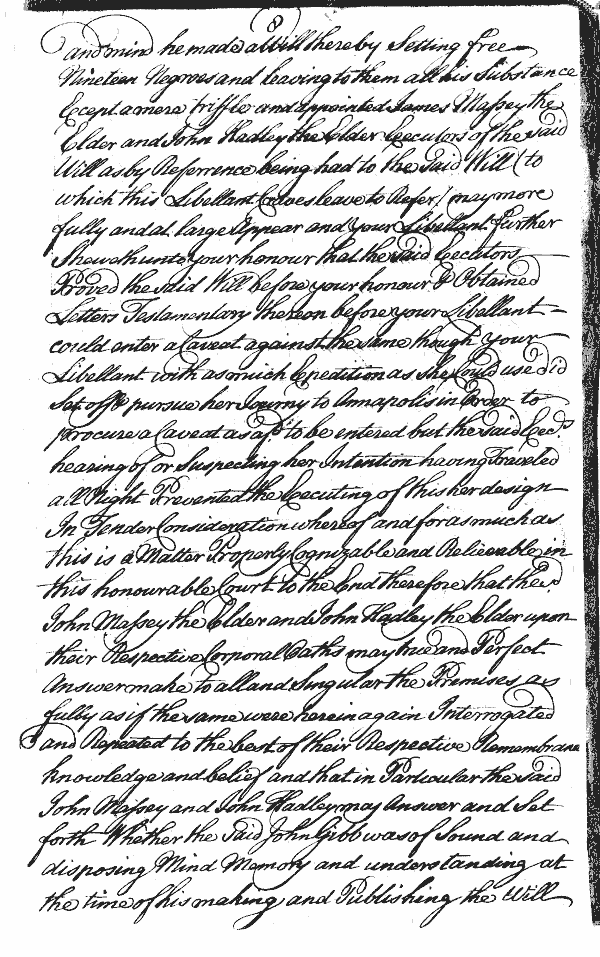 8
and mind he made a Will thereby Setting free
Nineteen Negroes and leaving to them all his Substance
Ecept a mere triffle and appointed James Massey the
Elder and John Hadley the Elder Executors of the said
Will as by Referrence being had to the said Will (to
which this Libellant Craves leave to Refer) may more
fully and at large Appear and your Libellant further
Sheweth unto your honour that the said Executors
Proved the said Will before your honour & Obtained
Letters Testamentary thereon before your Libellant
could enter a Caveat against the same though your
Libellant with as much Expedition as she Could use did
Set off & pursue her Journey to Annapolis in Order to
procure a Caveat as afd. to be entered but the said Exec.rs
hearing of or Suspecting her Intention having Traveled
all Night Prevented the Executing of this her design
In Tender Consideration whereof and for as much as
this is a Matter Properly Cognizable and Relieveable in
this honourable Court to the End therefore that the sd.
John Massey the Elder and John Hadley the Elder upon
their Respective Corporal Oaths may true and Perfect
Answer make to all and Singular the Premises as
fully as if the same were herein again Interrogated
and Repeated to the best of their Respective Remembrance
knowledge and belief and that in Particular the said
John Massey and John Hadley may Answer and Set
forth Whether the Said John Gibb was of Sound and
disposing Mind Memory and understanding at
the time of his making and Publishing the Will